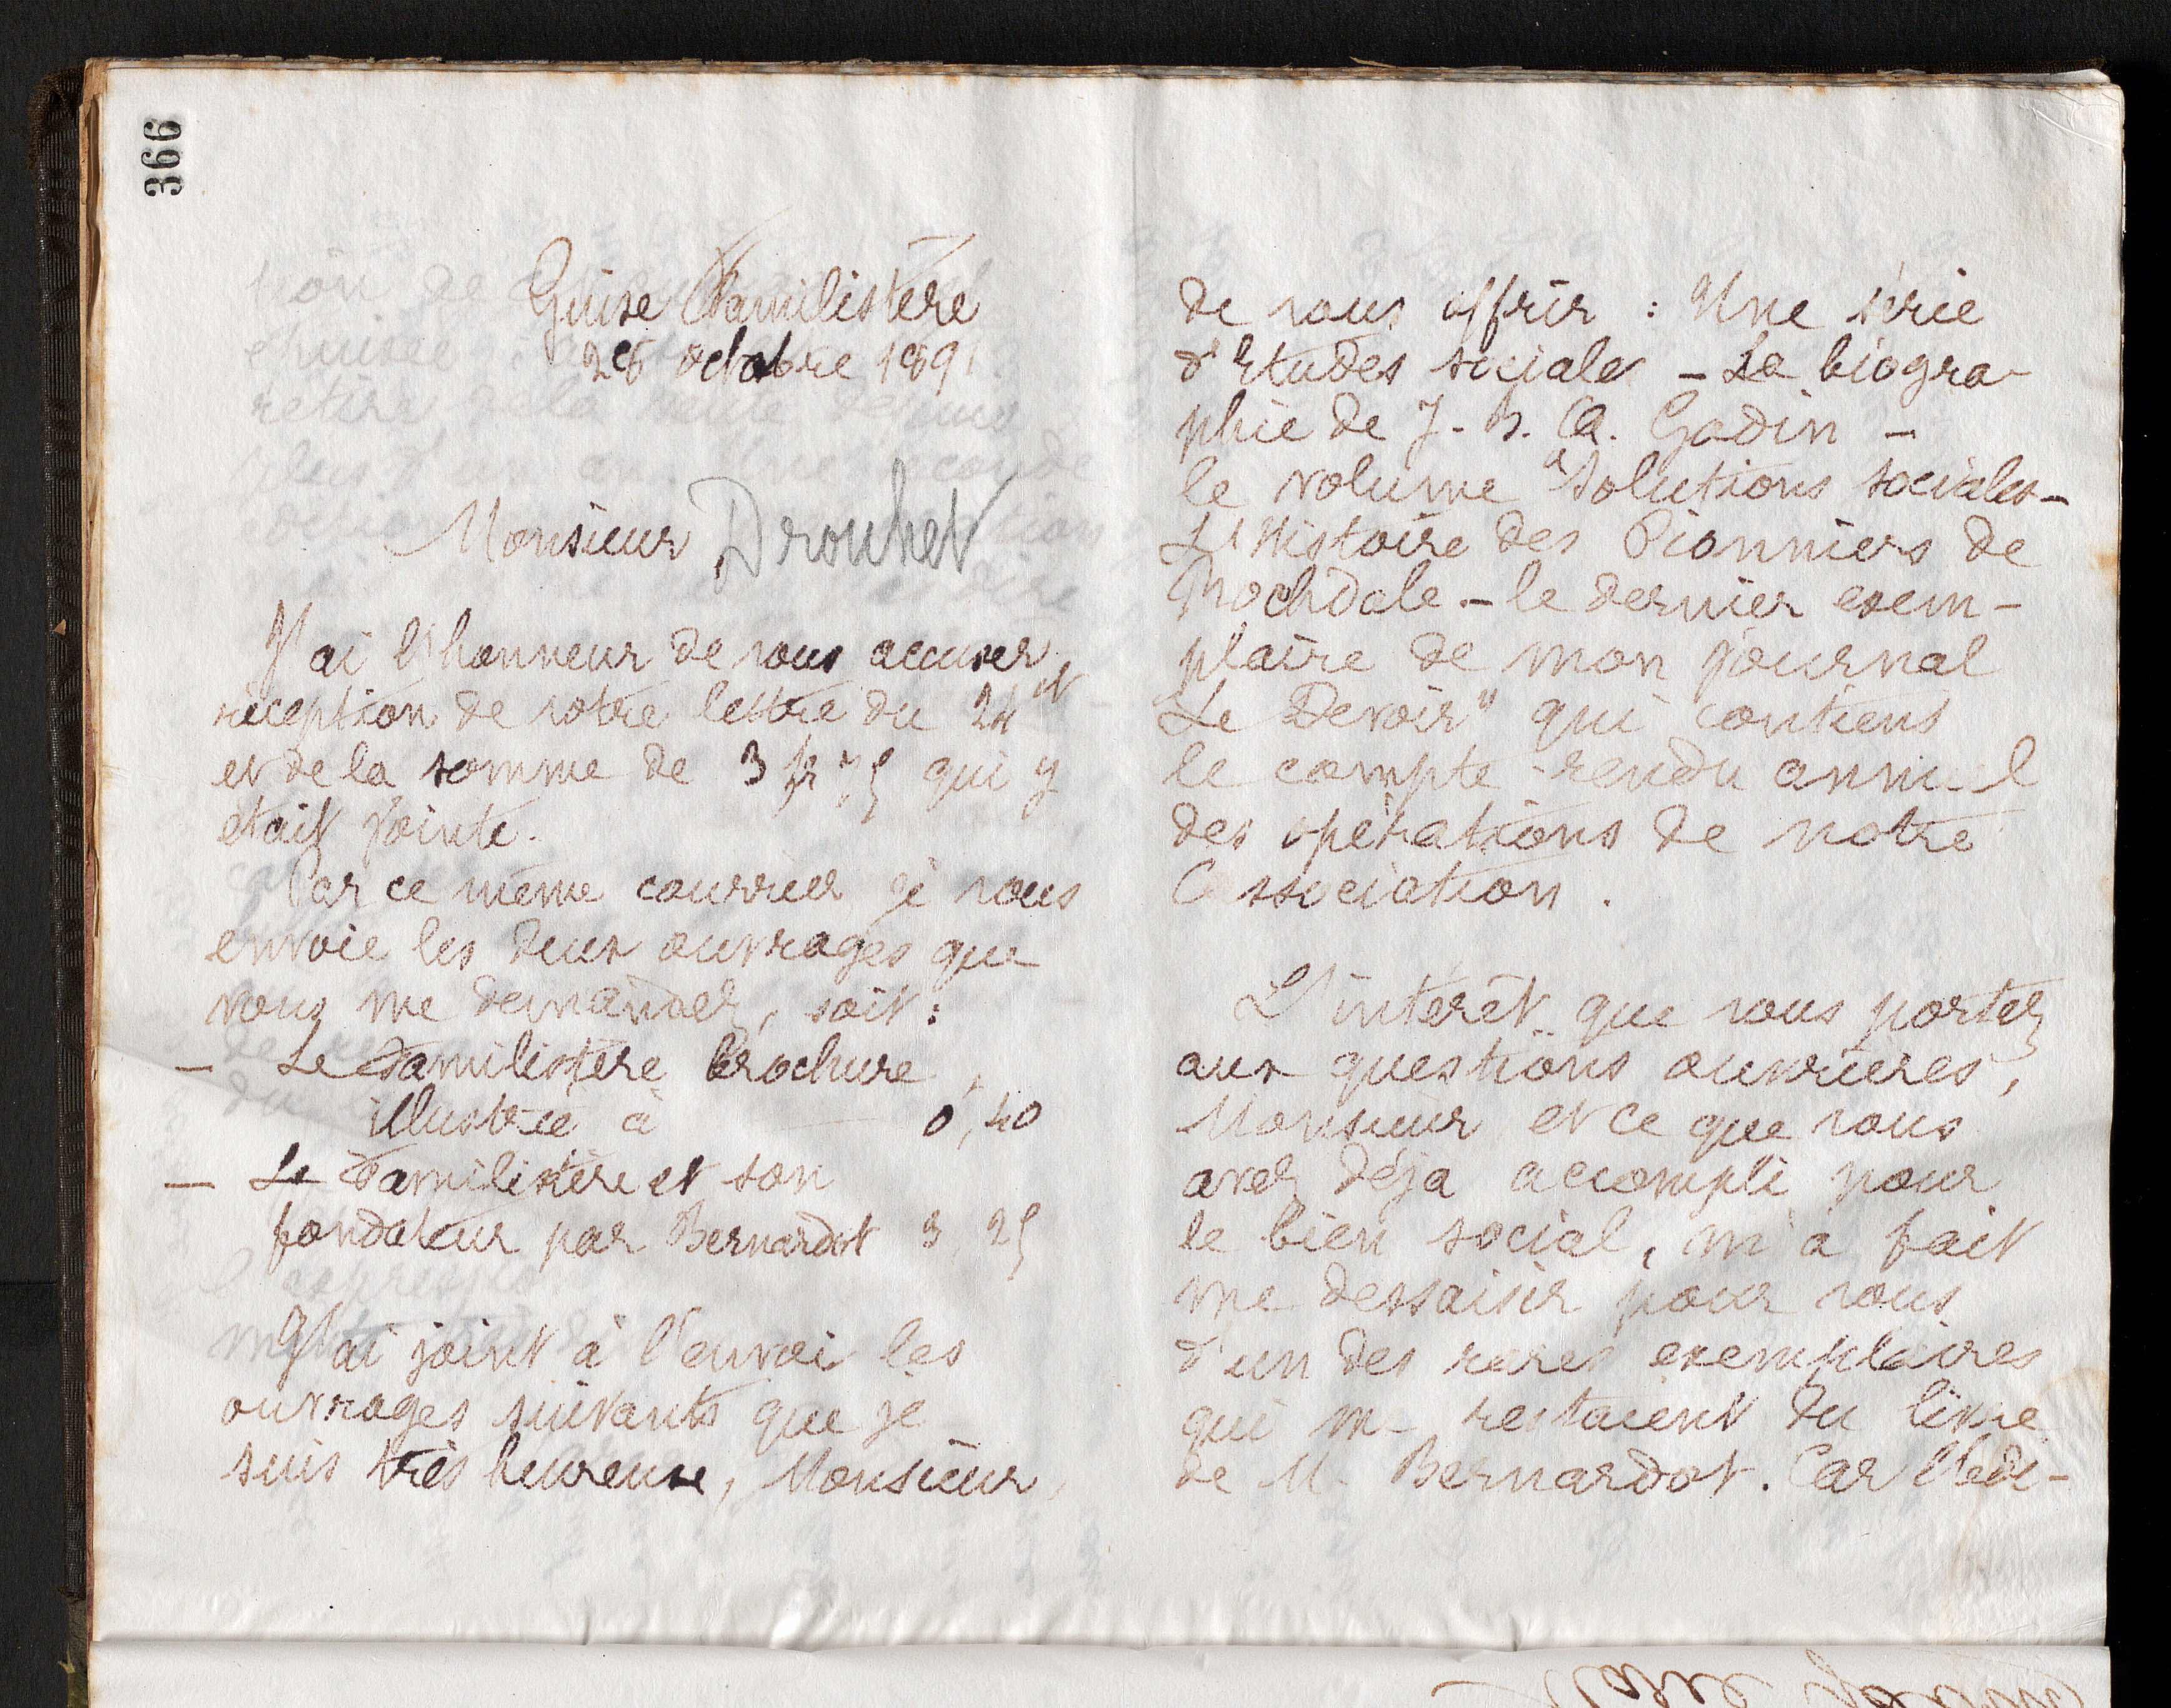 366
Guise Familistère
26 octobre 1891
Monsieur Drouhet
J'ai l'honneur de vous accuser
réception de votre lettre du 24 ct
et de la somme de 3 fr 75 qui y
était jointe.
Par ce même courrier je vous
envoie les deux ouvrages que
vous me demandez, soit :
— Le Familistère brochure
illustrée à 0,40
— Le Familistère et son
fondateur par Bernardot 3,25
J'ai joint à l'envoi les
ouvrages suivants que je
suis très heureuse, Monsieur,
de vous offrir : Une série
d'Etudes sociales – La biogra-
phie de J. B. A. Godin –
le volume "Solutions sociales –
L'Histoire des Pionniers de
Rochdale. – le dernier exem-
plaire de mon journal
Le Devoir" qui contiens
le compte-rendu annuel
des opérations de notre
Association.
L'intérêt que vous portez
aux questions ouvrières,
Monsieur et ce que vous
avez déja accompli pour
le bien social, m'a fait
me dessaisir pour vous
d'un des rares exemplaires
qui me restaient du livre
de M. Bernardot. Car l'édi-